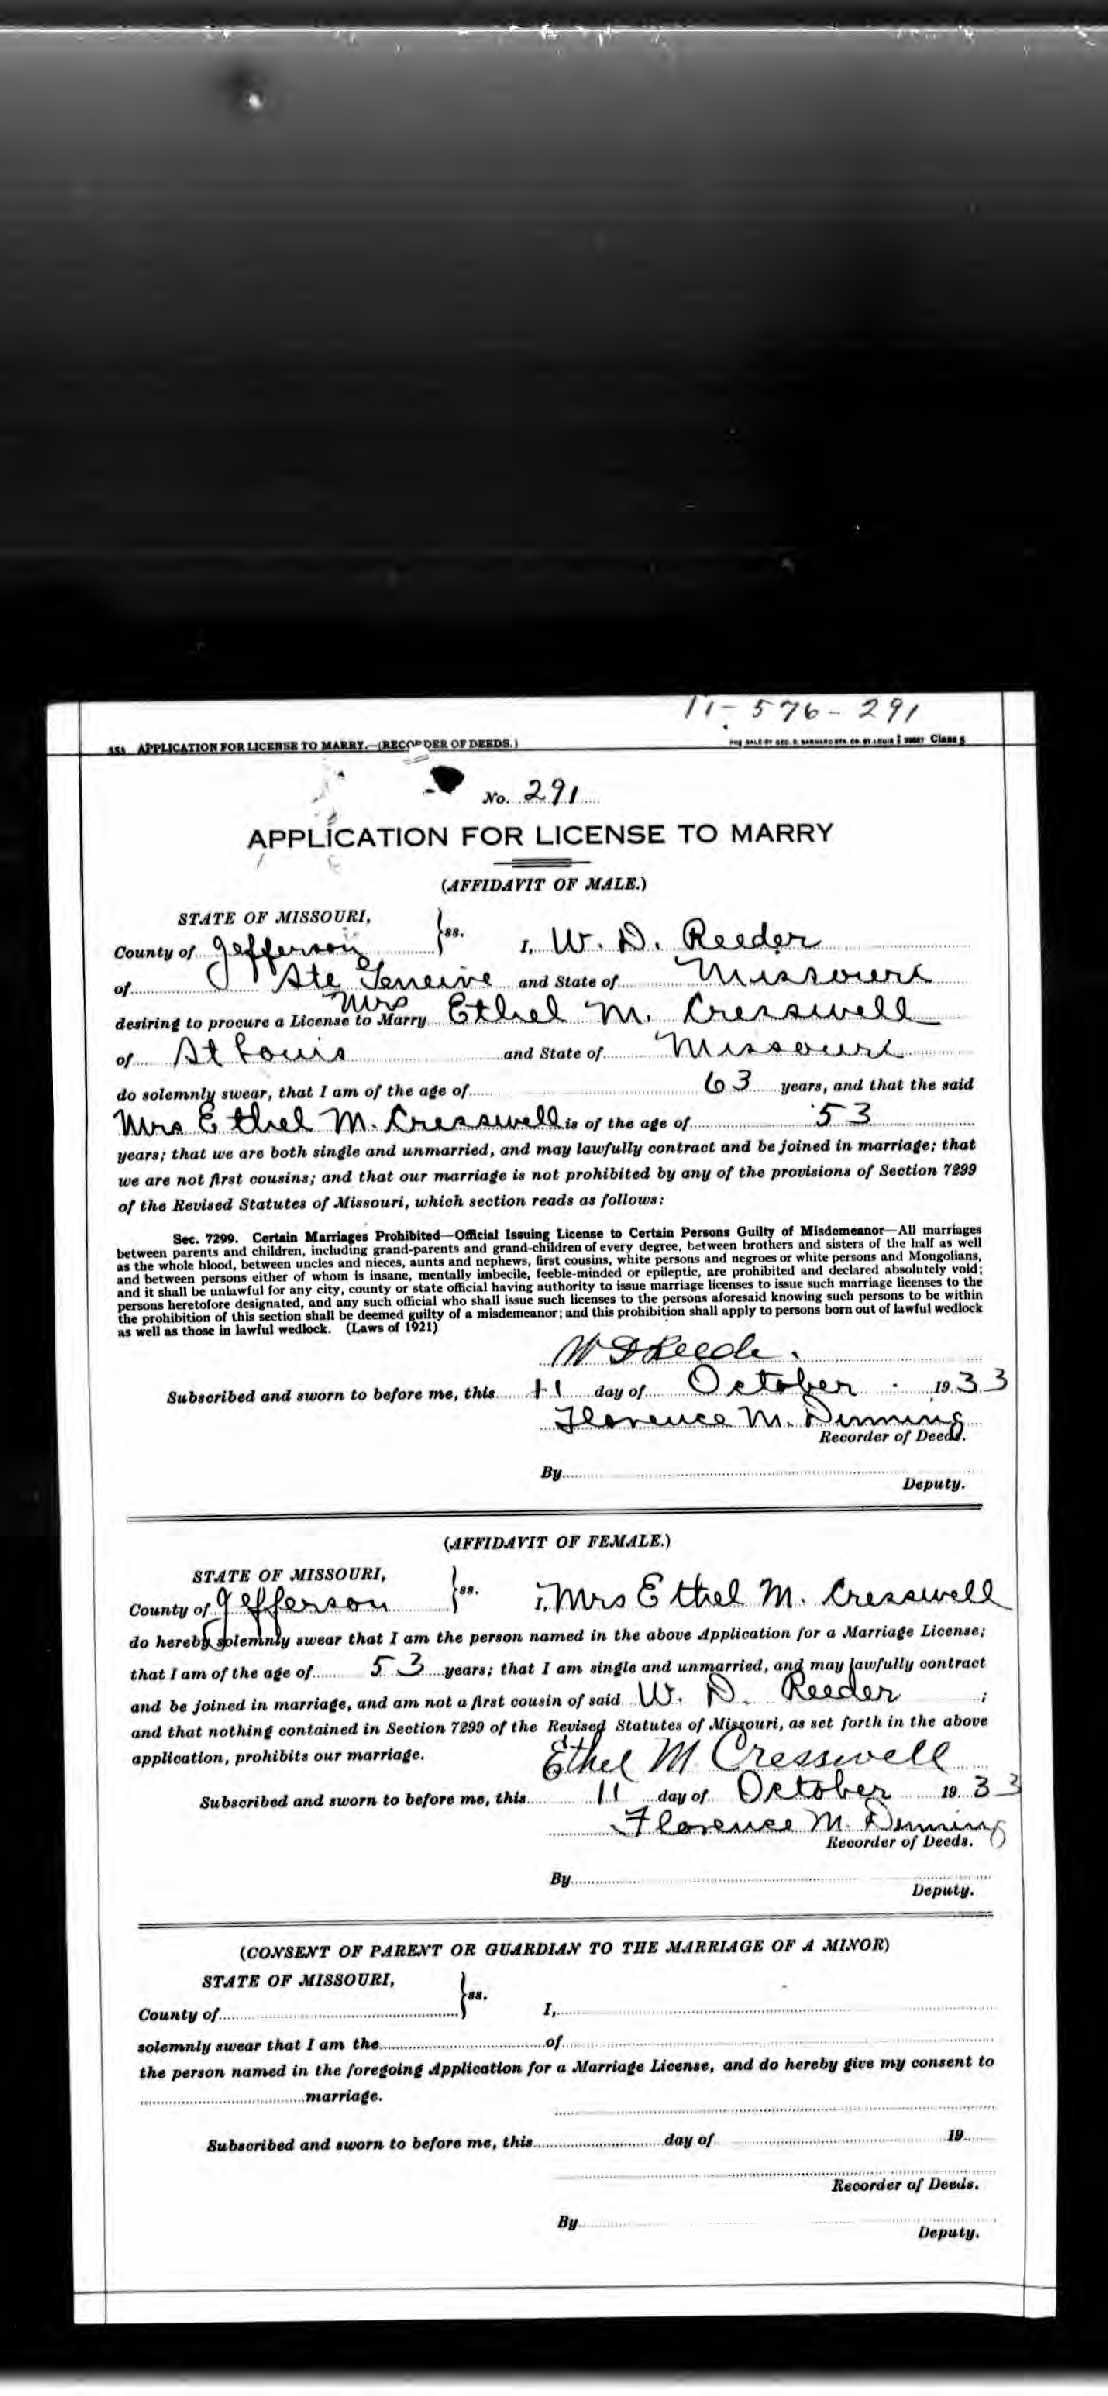 11-576-291
APPLICATION FOR LICENSE TO MARRY.—(RECORDER OF DEEDS.) Class 5
No. 291
APPLICATION FOR LICENSE TO MARRY
(AFFIDAVIT OF MALE.)
STATE OF MISSOURI,
County of Jefferson } ss. I, W. D. Reeder
of Ste Geneive and State of Missouri
desiring to procure a License to Marry Mrs Ethel M. Cresswell
of St Louis and State of Missouri
do solemnly swear, that I am of the age of 63 years, and that the said
Mrs Ethel M. Cresswell is of the age of 53
years; that we are both single and unmarried, and may lawfully contract and be joined in marriage; that
we are not first cousins; and that our marriage is not prohibited by any of the provisions of Section 7299
of the Revised Statutes of Missouri, which section reads as follows:
Sec. 7299. Certain Marriages Prohibited—Official Issuing License to Certain Persons Guilty of Misdemeanor—All marriages
between parents and children, including grand-parents and grand-children of every degree, between brothers and sisters of the half as well
as the whole blood, between uncles and nieces, aunts and nephews, first cousins, white persons and negroes or white persons and Mongolians,
and between persons either of whom is insane, mentally imbecile, feeble-minded or epileptic, are prohibited and declared absolutely void;
and it shall be unlawful for any city, county or state official having authority to issue marriage licenses to issue such marriage licenses to the
persons heretofore designated, and any such official who shall issue such licenses to the persons aforesaid knowing such persons to be within
the prohibition of this section shall be deemed guilty of a misdemeanor; and this prohibition shall apply to persons born out of lawful wedlock
as well as those in lawful wedlock. (Laws of 1921)
W D Reeder.
Subscribed and sworn to before me, this 11 day of October 1933
Florence M. Dinning
Recorder of Deeds.
By
Deputy.
(AFFIDAVIT OF FEMALE.)
STATE OF MISSOURI,
County of Jefferson } ss. I, Mrs Ethel M. Cresswell
do hereby solemnly swear that I am the person named in the above Application for a Marriage License;
that I am of the age of 53 years; that I am single and unmarried, and may lawfully contract
and be joined in marriage, and am not a first cousin of said W. D. Reeder ;
and that nothing contained in Section 7299 of the Revised Statutes of Missouri, as set forth in the above
application, prohibits our marriage. Ethel M Cresswell
Subscribed and sworn to before me, this 11 day of October 1933
Florence M. Dinning
Recorder of Deeds.
By
Deputy.
(CONSENT OF PARENT OR GUARDIAN TO THE MARRIAGE OF A MINOR)
STATE OF MISSOURI,
County of } ss. I,
solemnly swear that I am the of
the person named in the foregoing Application for a Marriage License, and do hereby give my consent to
marriage.
Subscribed and sworn to before me, this day of 19
Recorder of Deeds.
By
Deputy.